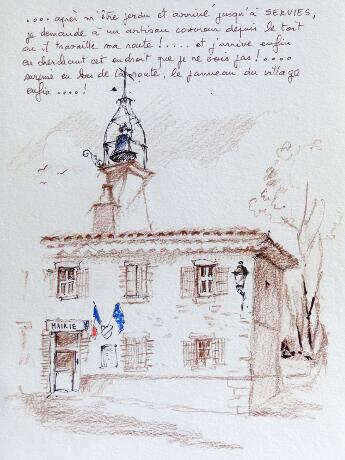 .... après m'être perdu et arrivé jusqu'à SERVIES,
je demande à un artisan couvreur depuis le toit
où il travaille ma route !..... et j'arrive enfin
en cherchant cet endroit que je ne vois pas !....
surprise en bas de la route, le panneau du village
enfin ....!
MAIRIE